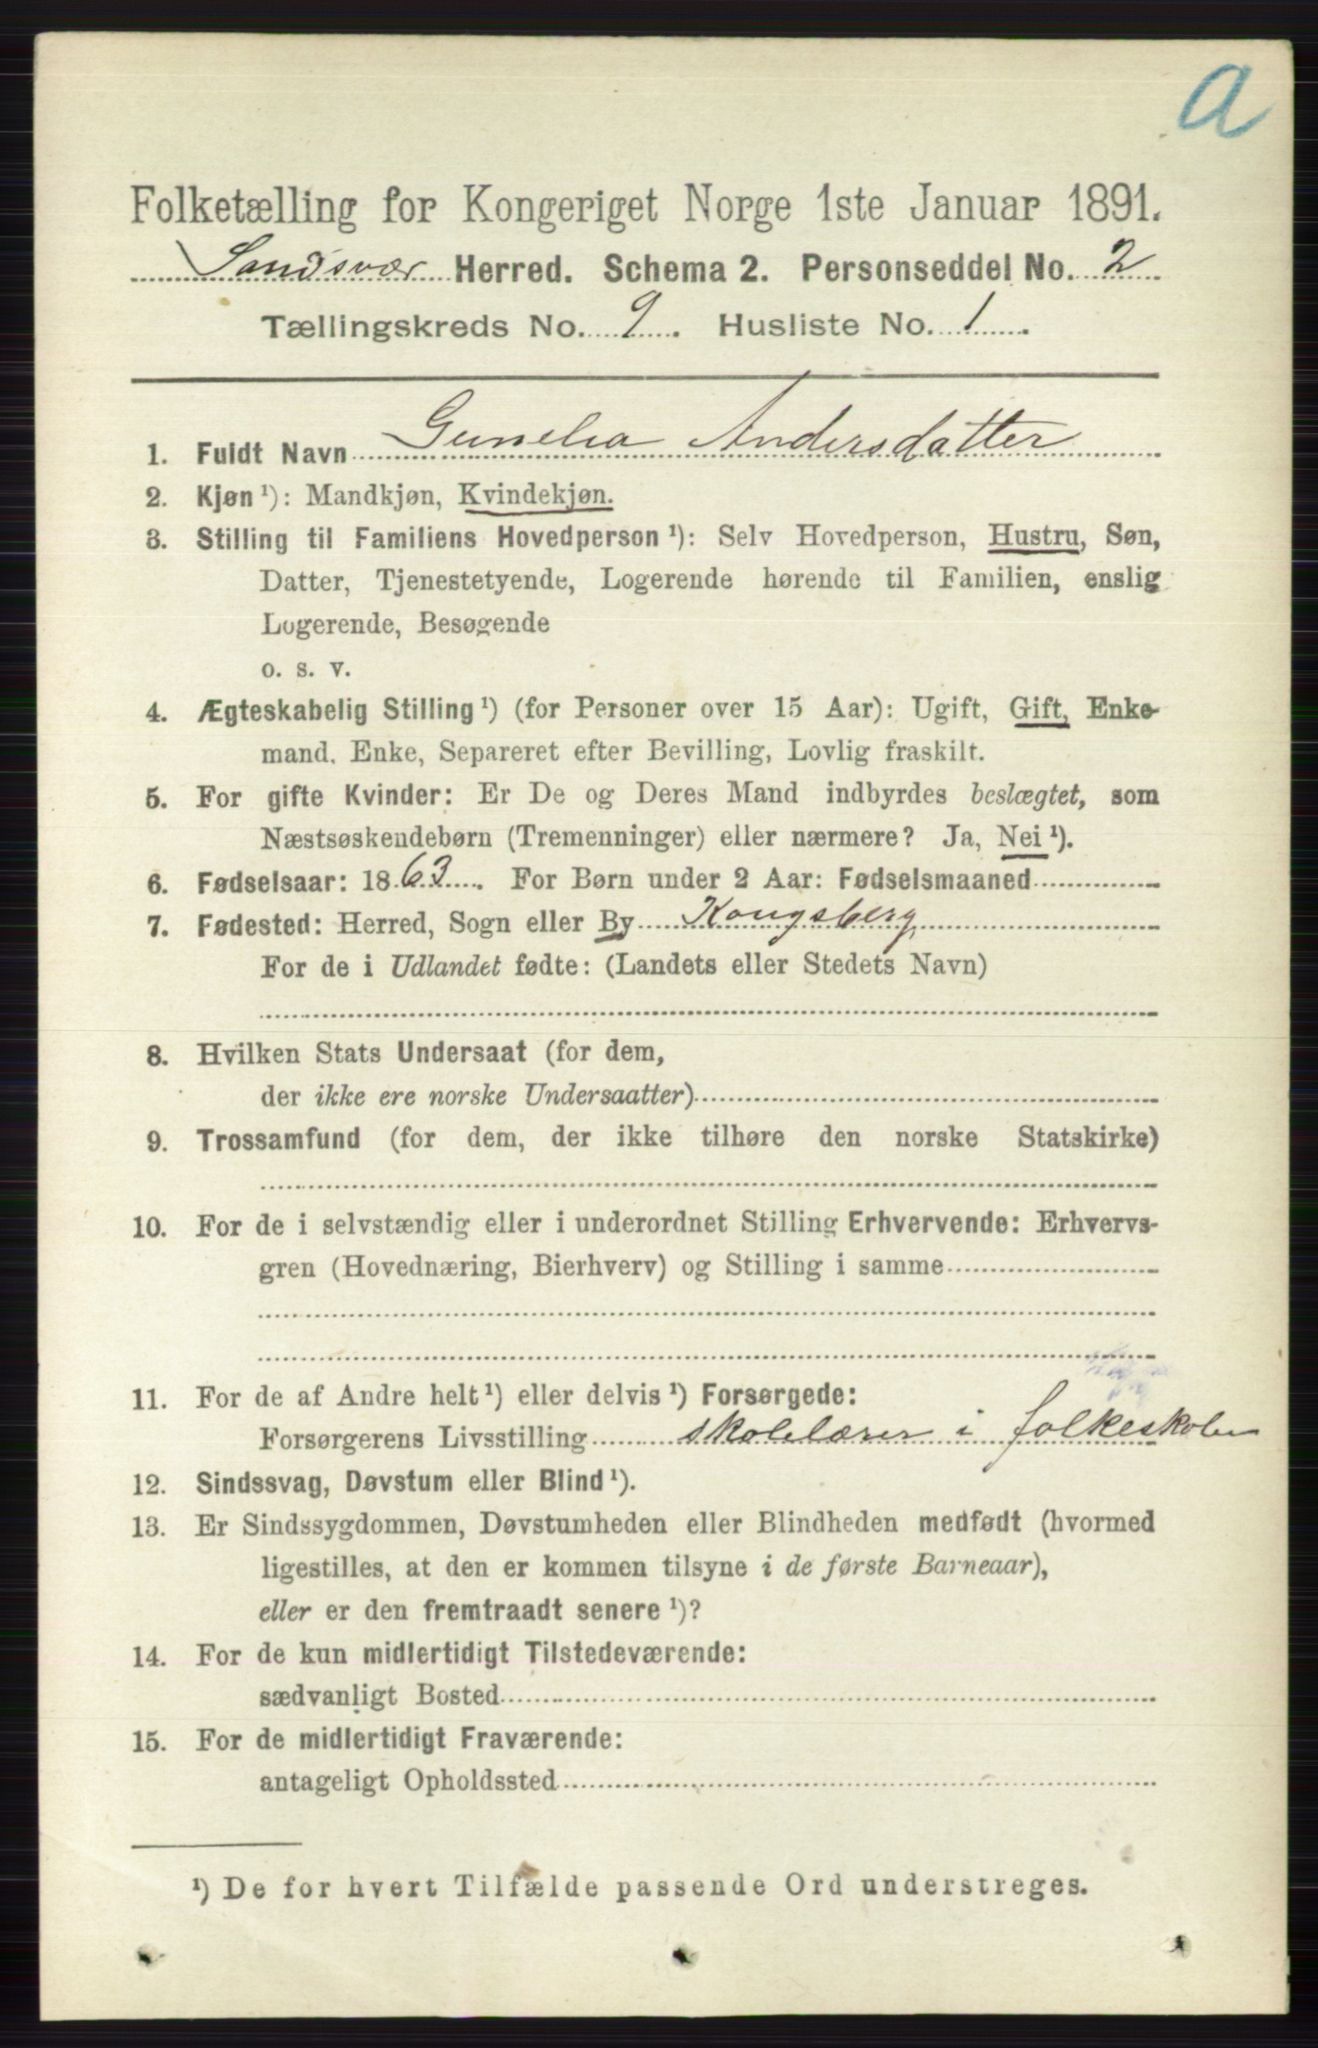 a
Folketælling for Kongeriget Norge 1ste Januar 1891.
Sandsvær Herred. Schema 2. Personseddel No. 2
Tællingskreds No. 9. Husliste No. 1.
1. Fuldt Navn Gunelia Andersdatter
2. Kjøn ¹): Mandkjøn, Kvindekjøn.
3. Stilling til Familiens Hovedperson ¹): Selv Hovedperson, Hustru, Søn,
Datter, Tjenestetyende, Logerende hørende til Familien, enslig
Logerende, Besøgende
o. s. v.
4. Ægteskabelig Stilling ¹) (for Personer over 15 Aar): Ugift, Gift, Enke-
mand, Enke, Separeret efter Bevilling, Lovlig fraskilt.
5. For gifte Kvinder: Er De og Deres Mand indbyrdes beslægtet, som
Næstsøskendebørn (Tremenninger) eller nærmere? Ja, Nei ¹).
6. Fødselsaar: 1863. For Børn under 2 Aar: Fødselsmaaned
7. Fødested: Herred, Sogn eller By Kongsberg
For de i Udlandet fødte: (Landets eller Stedets Navn)
8. Hvilken Stats Undersaat (for dem,
der ikke ere norske Undersaatter)
9. Trossamfund (for dem, der ikke tilhøre den norske Statskirke)
10. For de i selvstændig eller i underordnet Stilling Erhvervende: Erhvervs-
gren (Hovednæring, Bierhverv) og Stilling i samme
11. For de af Andre helt ¹) eller delvis ¹) Forsørgede:
Forsørgerens Livsstilling skolelærer i folkeskolen
12. Sindssvag, Døvstum eller Blind ¹).
13. Er Sindssygdommen, Døvstumheden eller Blindheden medfødt (hvormed
ligestilles, at den er kommen tilsyne i de første Barneaar),
eller er den fremtraadt senere ¹)?
14. For de kun midlertidigt Tilstedeværende:
sædvanligt Bosted
15. For de midlertidigt Fraværende:
antageligt Opholdssted
¹) De for hvert Tilfælde passende Ord understreges.